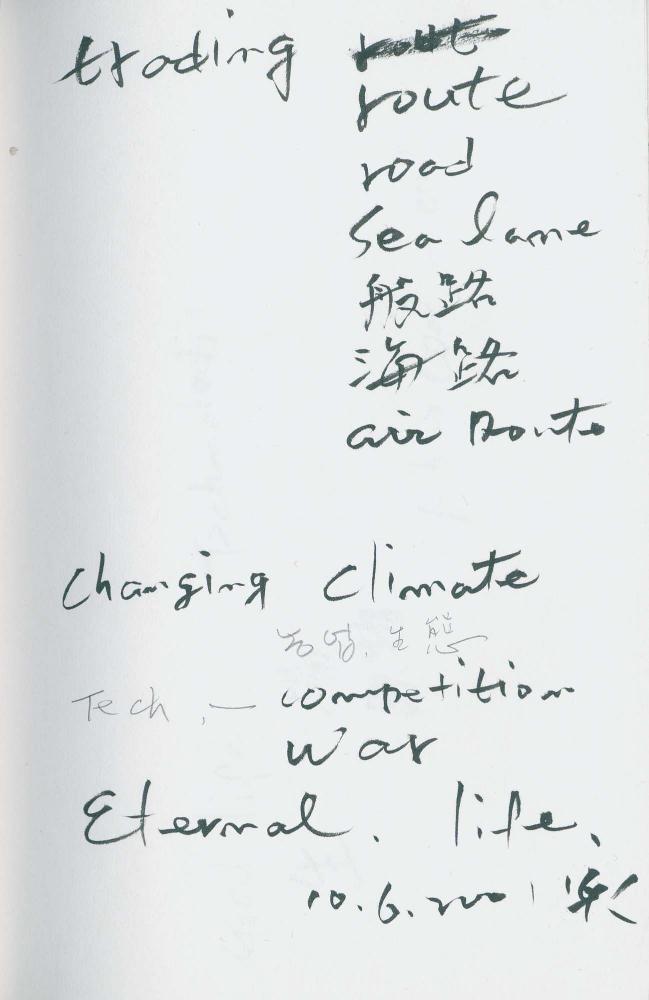 trading
route
road
Sea lane
般路
海路
air Route
Changing Climate
生態
Tech, — competition
war
Eternal. life.
10.6.2001